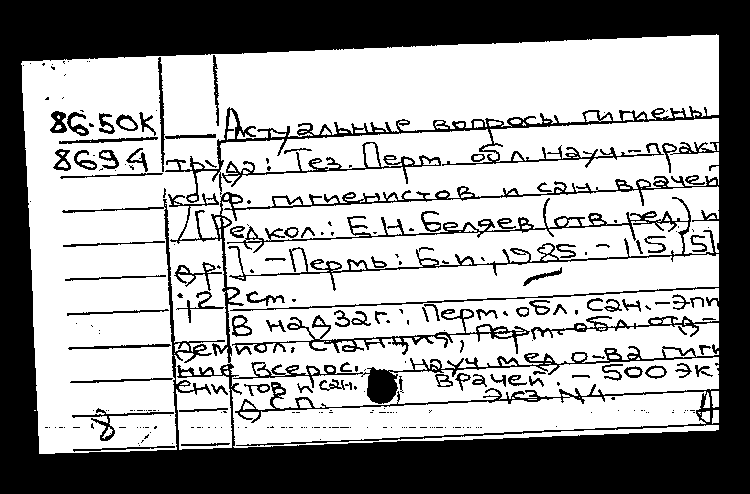 86-50К Актуальные вопросы гигиены
8694 труда: Тез. Перм. обл. науч.-практ
конф. гигиенистов и сан. врачей
/[Редкол.: Е.Н. Беляев (отв. ред.) и
др.]. - Пермь: Б.и., 1985. - 115, [5]
; 22 см.
В надзаг.: Перм. обл. сан.-эпи
демиол. станция, Перм. обл. отд-
ние Всерос. науч. мед. о-ва гиги
енистов и сан. врачей. - 500 эк
ДСП. экз. N4.
8 Д